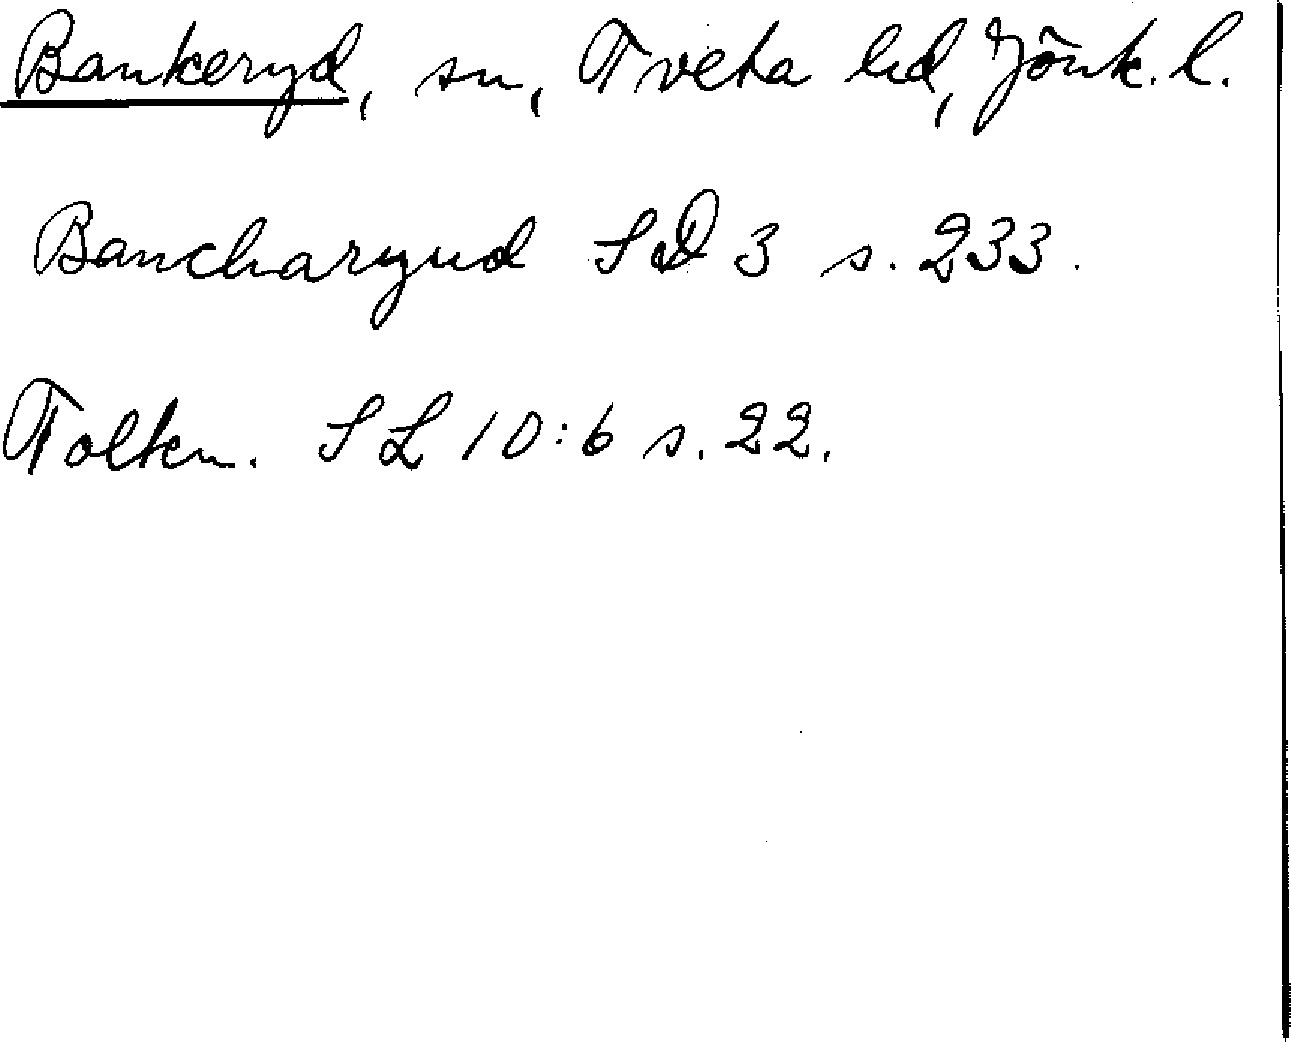 Bankeryd, sn, Tveta hd, Jönk. l.
Bancharyud SD 3 s. 233.
Tolkn. SL 10:6 s. 22.